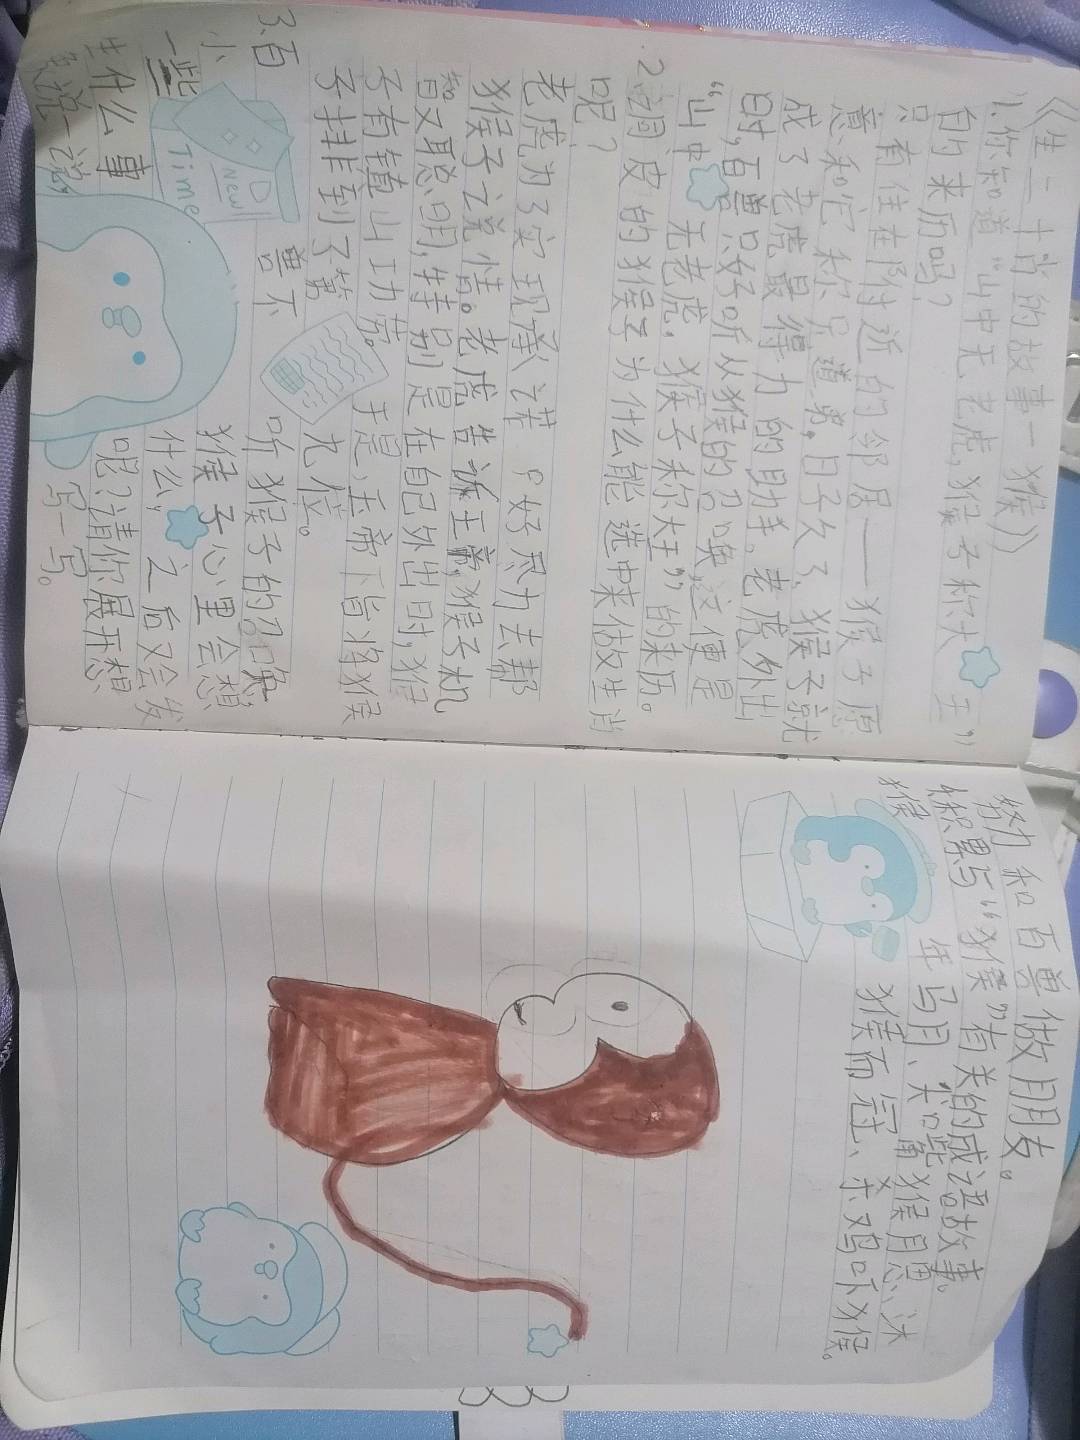 《生二十肖的故事一猴》
1.你知道“山中无老虎,猴子称大王”
的来历吗?
只有住在附近的邻居——猴子愿
意和它称兄道弟,日子久了,猴子就
成了老虎最得力的助手,老虎外出
时,百兽只好听从猴的召唤,这便是
“山中无老虎,猴子称大王”的来历。
2.调皮的猴子为什么能选中来做生肖
呢?
老虎为了实现承诺只好尽力去帮
猴子之说情。老虎告诉玉帝,猴子机
智又聪明,特别是在自己外出时,猴
子有镇山功劳。于是,玉帝下旨将猴
子排到了第九位。
3.百兽不听猴子的召唤
小猴子心里会想
一些什么”之后又会发
生什么事呢?请你展开想
象说一说写一写。
努力和百兽做朋友。
4积累与“猴”有关的成语故事。
猴年马月、尖嘴猴腮、沐
猴而冠、杀鸡吓猴。
Time
New